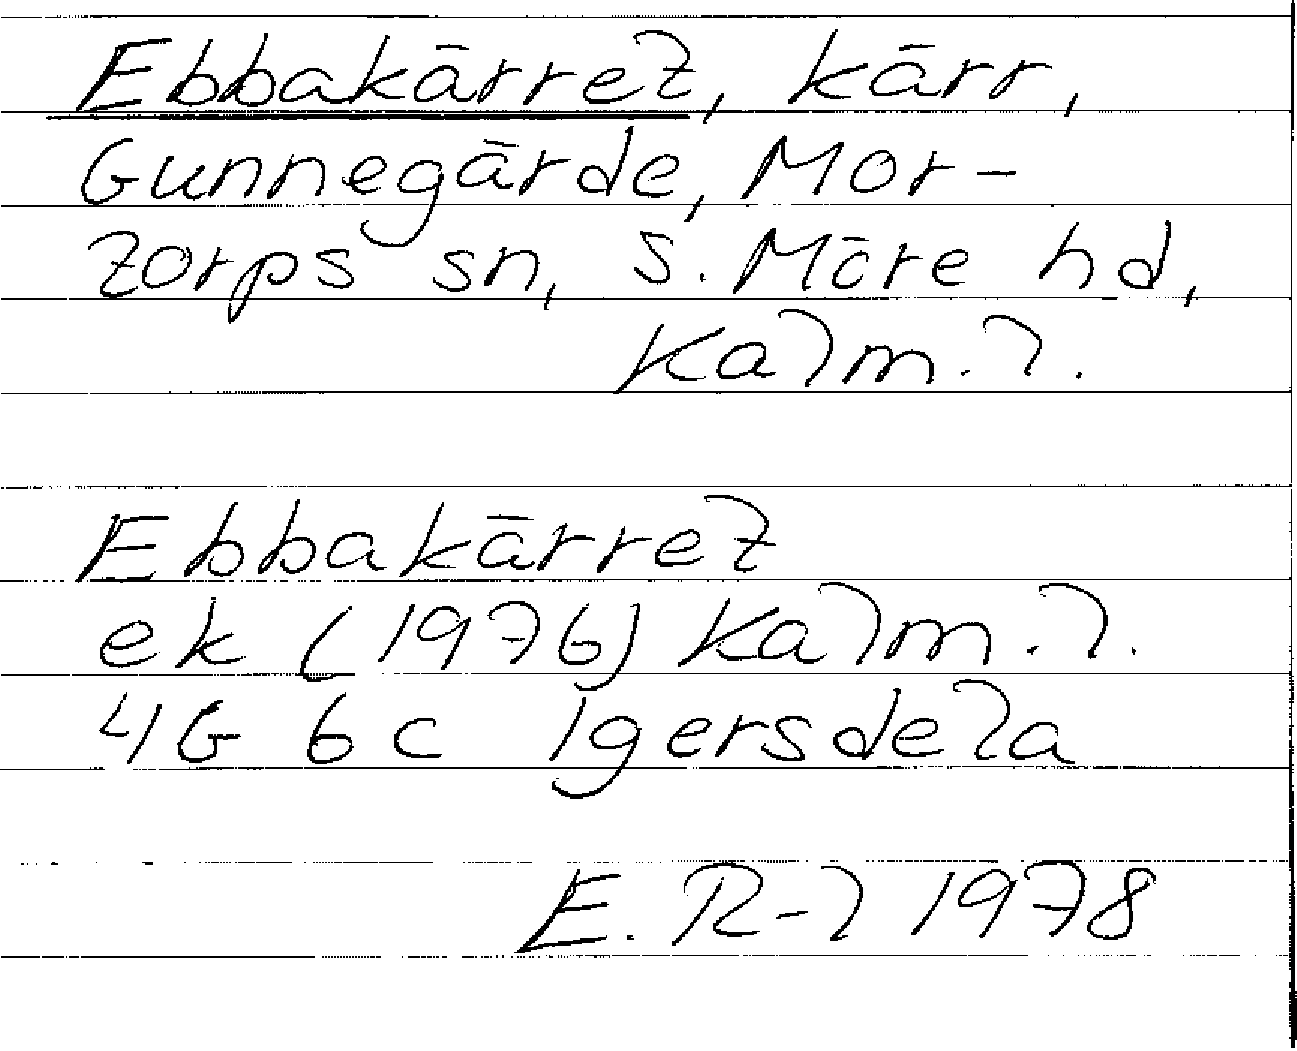 Ebbakärret, kärr,
Gunnegärde, Mor-
torps sn, S. Möre hd,
Kalm. l.
Ebbakärret
ek (1976) Kalm. l.
4G 6c Igersdela
E. R-l 1978